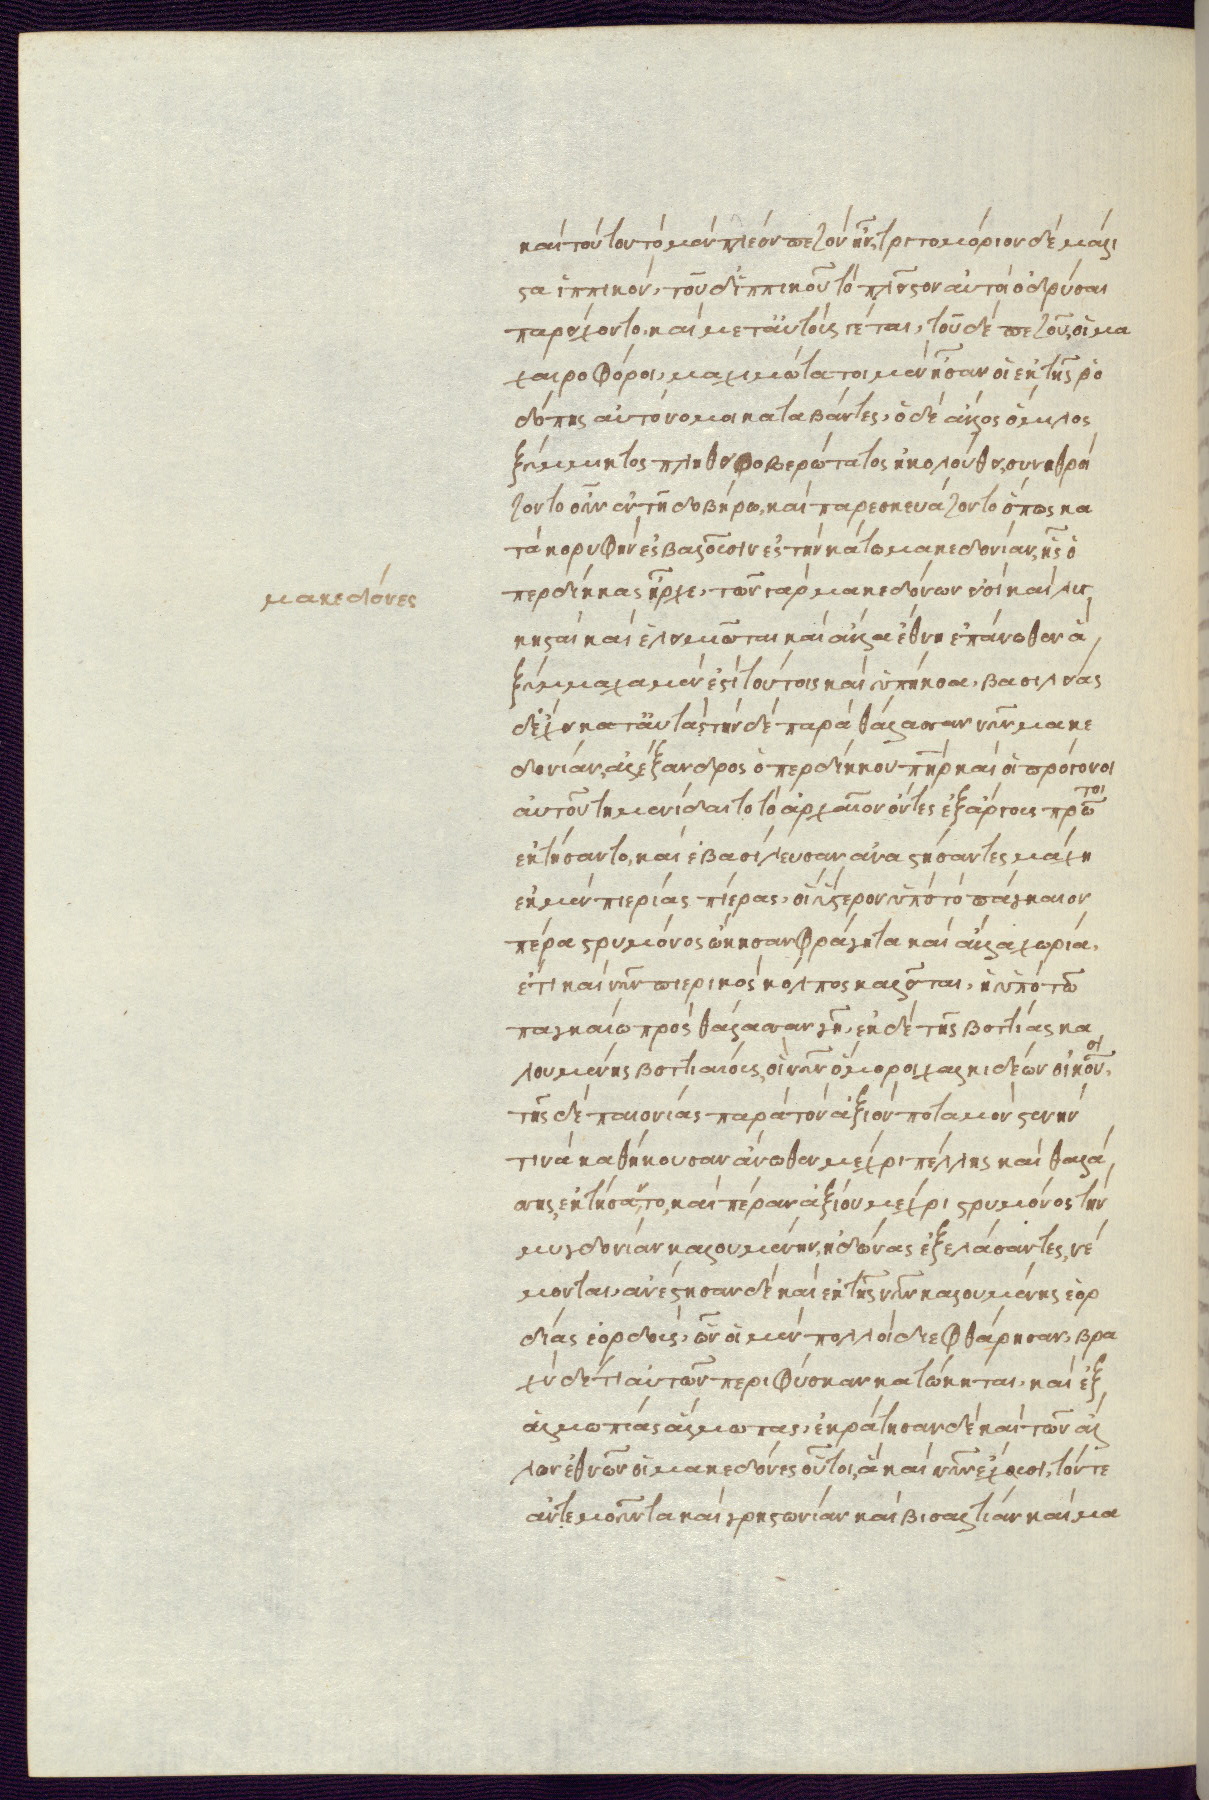 καὶ τούτου τὸ μὲν πλέον πεζὸν ἦν, τριτομόριον δὲ μάλι
στα ἱππικόν. τοῦ δ' ἱππικοῦ τὸ πλεῖστον αὐτοὶ ὀδρύσαι
παρείχοντο, καὶ μετ' αὐτοὺς γέται. τοῦ δὲ πεζοῦ, οἱ μα
χαιροφόροι, μαχιμώτατοι μὲν ἦσαν οἱ ἐκ τῆς ῥο
δόπης αὐτόνομοι καταβάντες. ὁ δὲ ἄλλος ὅμιλος
ξύμμικτος πλήθει φοβερώτατος ἠκολούθει, συνηθροί
ζοντο οὖν ἐν τῇ δοβήρῳ, καὶ παρεσκευάζοντο ὅπως κα
τὰ κορυφὴν ἐσβαλοῦσιν ἐς τὴν κάτω μακεδονίαν, ἧς ὁ
μακεδόνες
περδίκκας ἦρχε. τῶν γὰρ μακεδόνων εἰσὶ καὶ λυγ
κησταὶ καὶ ἐλειμιῶται καὶ ἄλλα ἔθνη ἐπάνωθεν ἃ
ξύμμαχα μέν ἐστι τούτοις καὶ ὑπήκοα, βασιλείας
δ' ἔχει καθ' αὑτάς, τὴν δὲ παρὰ θάλασσαν νῦν μακε
δονίαν, ἀλέξανδρος ὁ περδίκκου πῆρ καὶ οἱ πρόγονοι
αὐτοῦ τημενίδαι τὸ τὸ ἀρχαῖον ὄντες ἐξ ἄργους πρῶτοι
ἐκτήσαντο, καὶ ἐβασίλευσαν ἀναστήσαντες μάχῃ
ἐκ μὲν πιερίας πίερας. οἳ ὕστερον ὑπὸ τὸ πάγκαιον
πέρα στρυμόνος ᾤκησαν φάγρητα καὶ ἄλλα χωρία.
ἔτι καὶ νῦν πιερικὸς κόλπος καλεῖται, ἡ ὑπὸ τῶ
παγκαίω πρὸς θάλασσαν γῆ. ἐκ δὲ τῆς βοττίας κα
λουμένης βοττιαίους, οἳ νῦν ὅμοροι χαλκιδέων οἰκοῦσι.
τῆς δὲ παιονίας παρὰ τὸν ἀξιὸν ποταμὸν στενήν
τινα καθήκουσαν ἄνωθεν μέχρι πέλλης καὶ θαλά
σσης, ἐκτήσαντο, καὶ πέραν ἀξιοῦ μέχρι στρυμόνος τὴν
μυγδονίαν καλουμένην, ἠδῶνας ἐξελάσαντες, νέ
μονται. ἀνέστησαν δὲ καὶ ἐκ τῆς νῦν καλουμένης ἐορ
δίας ἐορδούς. ὧν οἱ μὲν πολλοὶ διεφθάρησαν, βρα
χὺ δέ τι αὐτῶν περὶ φύσκαν κατῴκηται. καὶ ἐξ
ἀλμωπίας ἄλμωπας. ἐκράτησαν δὲ καὶ τῶν ἄλ
λων ἐθνῶν οἱ μακεδόνες οὗτοι, ἃ καὶ νῦν ἔχουσι, τόν τε
ἀντεμοῦντα καὶ γρηστωνίαν καὶ βισαλτίαν καὶ μα